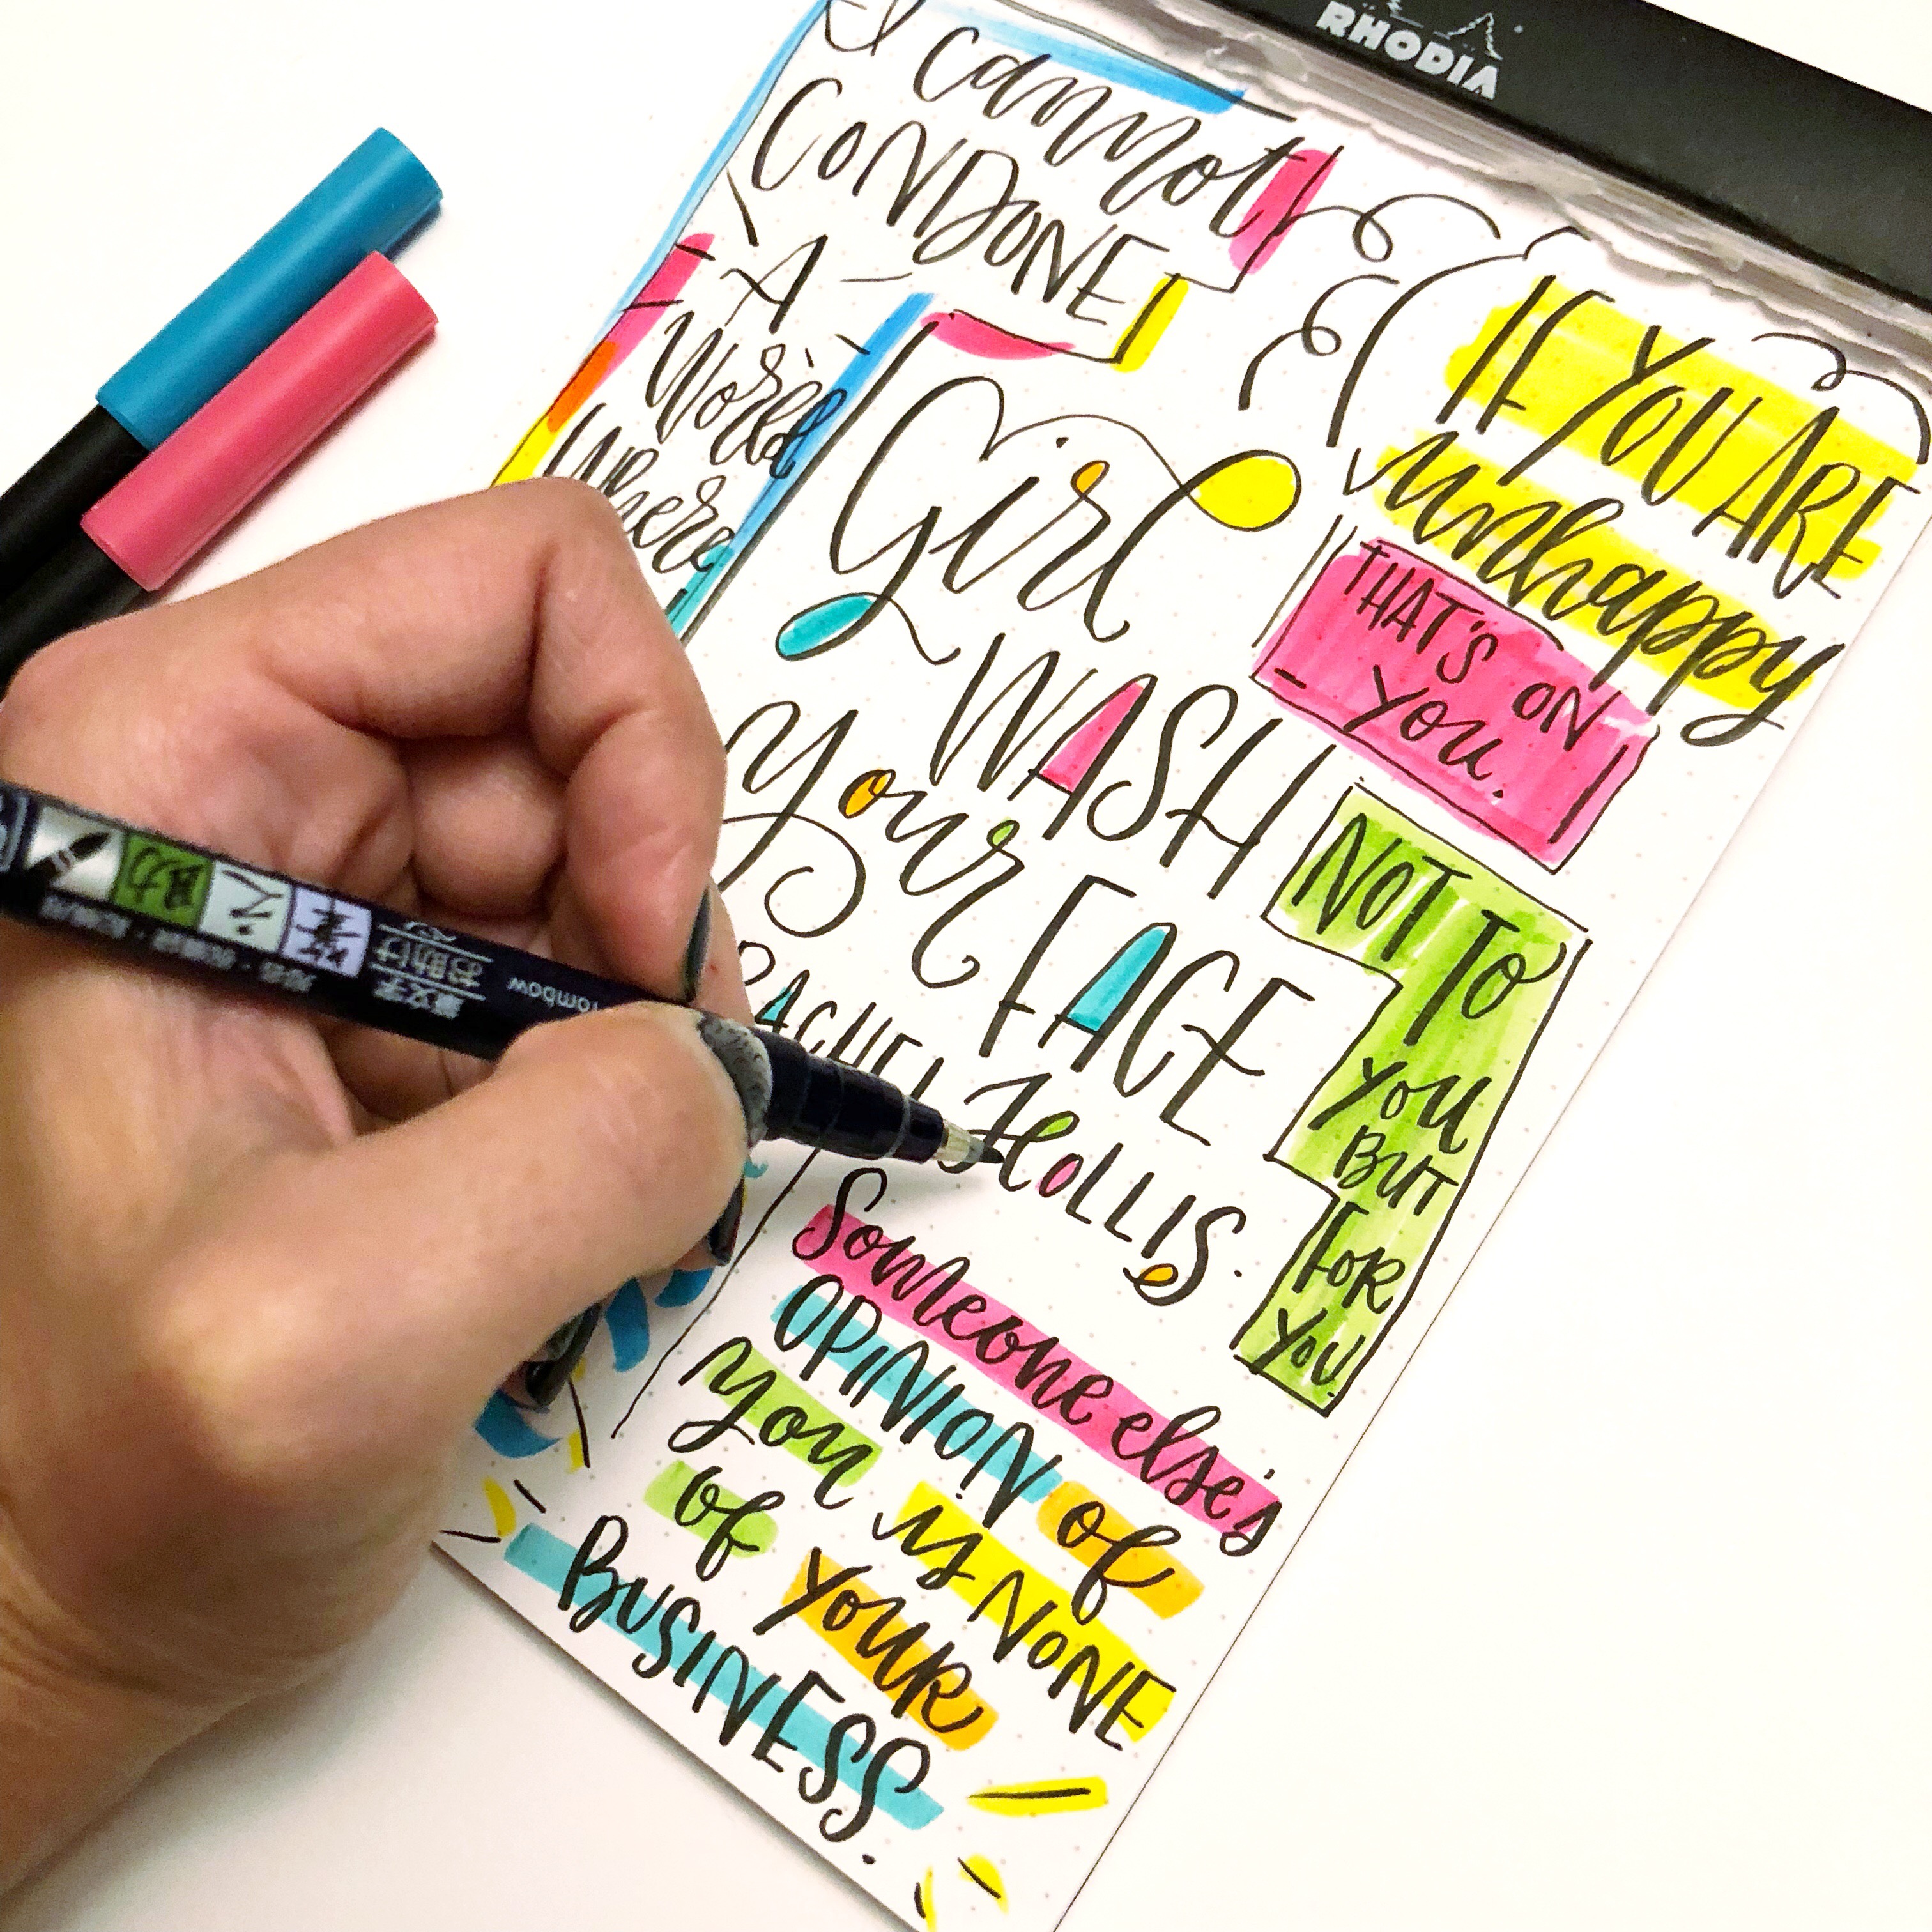 RHODIA
I cannot
CONDONE
A
World
Where
Girl
WASH
your
FACE
RACHEL HOLLIS.
IF YOU ARE
unhappy
THAT'S ON
you.
NOT TO
you
BUT
FOR
YOU.
Someone else's
OPINION of
you is NONE
of YOUR
BUSINESS.
Tombow
筆文字
お助け
筆
之
助